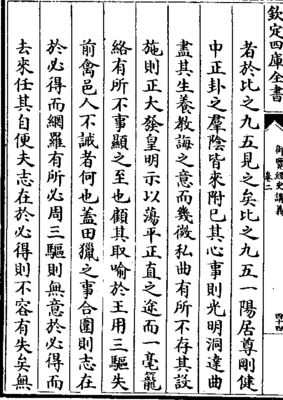 欽定四庫全書
御覽經史講義
卷二
四十四
者於比之九五見之矣比之九五一陽居尊剛健
中正卦之羣陰皆來附巳其心事則光明洞達曲
盡其生養教誨之意而幾微私曲有所不存其設
施則正大發皇明示以蕩平正直之途而一毫籠
絡有所不事顯之至也顧其取喻於王用三驅失
前禽邑人不誡者何也蓋田獵之事合圍則志在
於必得而網羅有所必周三驅則無意於必得而
去來任其自便夫志在於必得則不容有失矣無